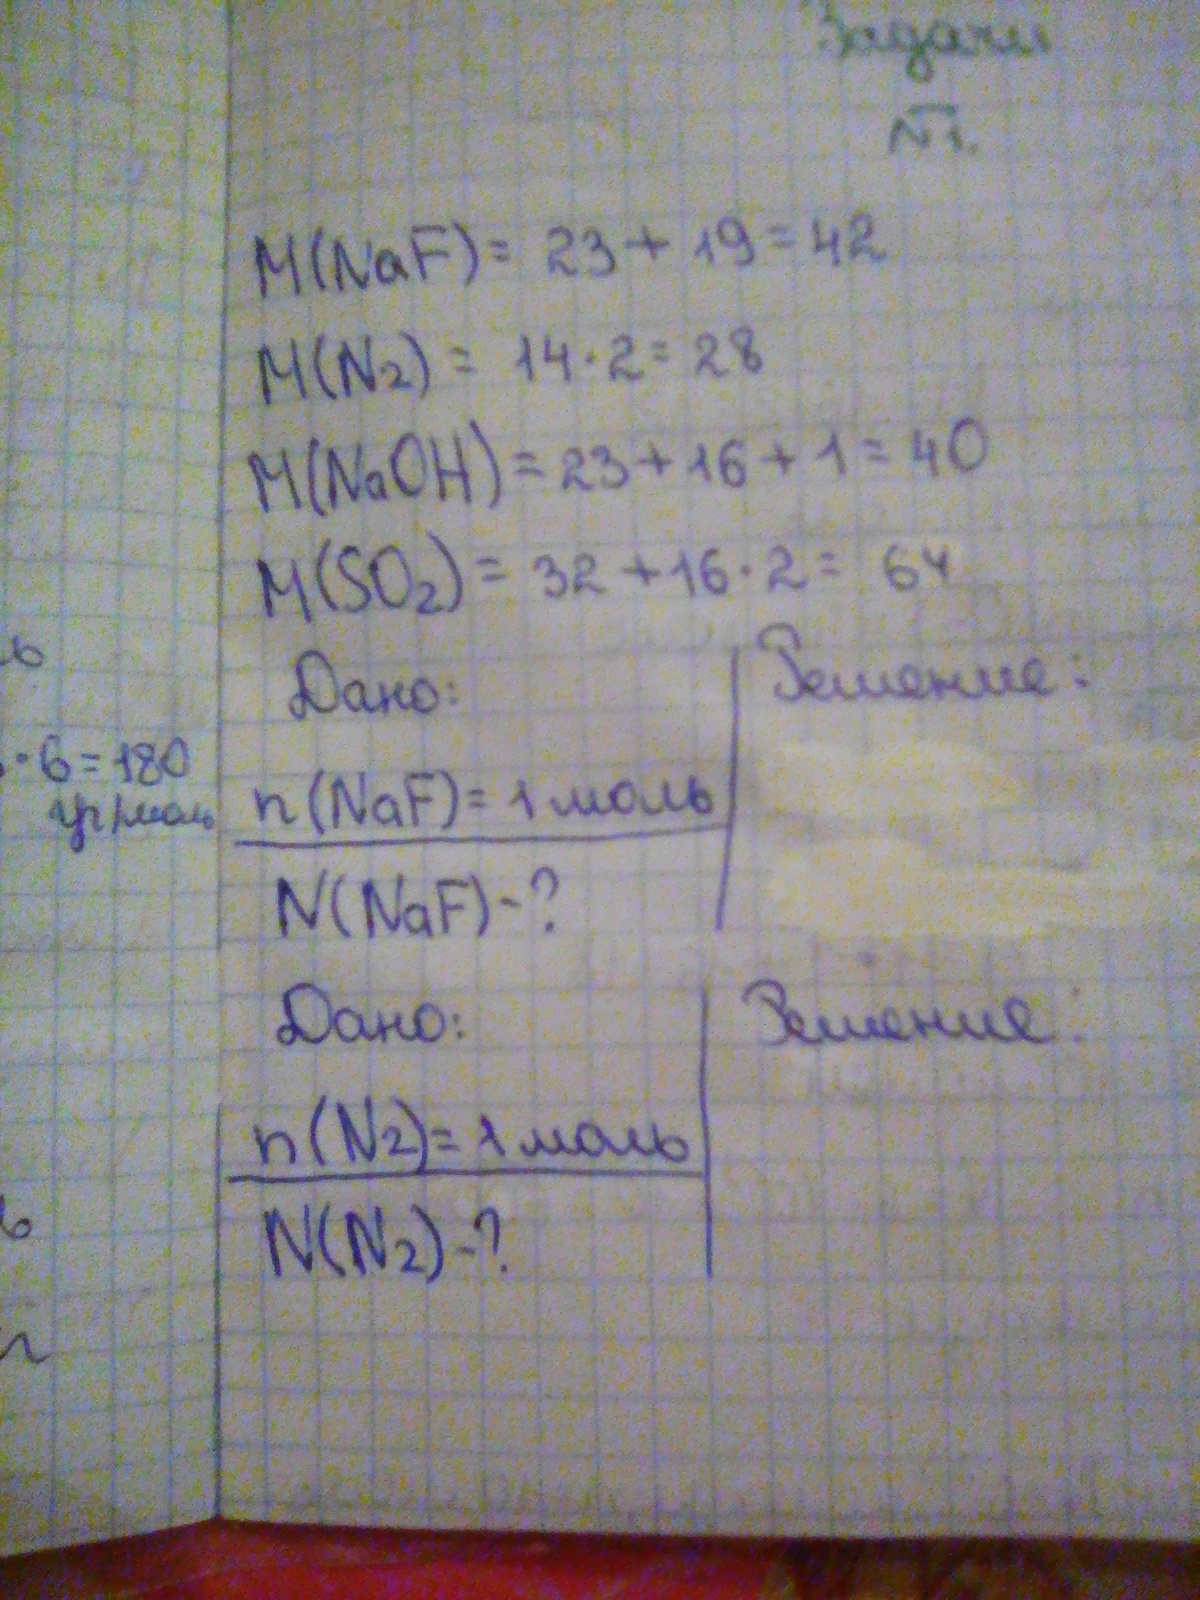 Задачи
№1.
M(NaF) = 23 + 19 = 42
M(N2) = 14 · 2 = 28
M(NaOH) = 23 + 16 + 1 = 40
M(SO2) = 32 + 16 · 2 = 64
ь
· 6 = 180
гр/моль
Дано:
Решение:
n(NaF) = 1 моль
N(NaF) - ?
Дано:
Решение:
n(N2) = 1 моль
N(N2) - ?